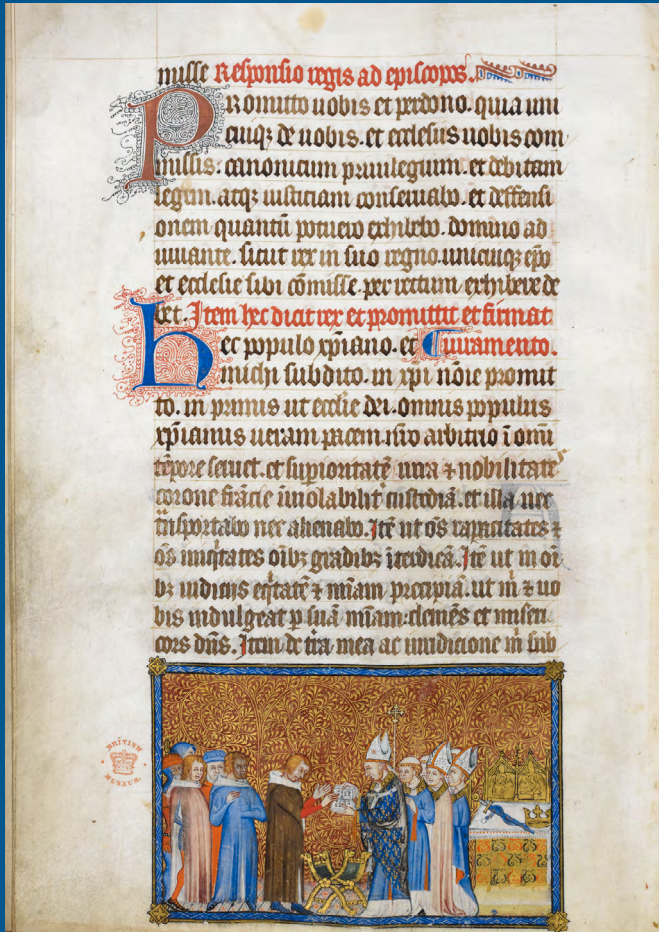 misse Responsio regis ad episcopos.
Promitto uobis et perdono. quia uni
cuiqz de uobis. et ecclesiis uobis com
missis. canonicum priuilegium. et debitam
legem. atqz iusticiam conseruabo. et deffensi
onem quantū potuero exhibebo. domino ad
iuuante. sicut rex in suo regno. unicuiqz epō
et ecclesie sibi cōmisse. per rectum exhibere de
bet. Item hec dicit rex et promittit et firmat
hec populo xp̄iano. et iuramento.
michi subdito. in xp̄i nōie promit
to. in primis ut ecclīe dei. omnis populus
xp̄ianus ueram pacem nr̄o arbitrio ī omī
tēpore seruet. et supioritatē iura ⁊ nobilitate
corone frācie īuiolabilit custodiā. et illa nec
trāsportabo nec alienabo. Itē ut ōs rapacitates ⁊
ōs iniqtates oībz gradibz īterdicā. Itē ut in oī
bz iudiciis eqtatē ⁊ mīam precipiā. ut m ⁊ uo
bis indulgeat p suā mīam clemēs et miseri
cors dn̄s. Item de tr̄a mea ac iuridicione m sub
BRITISH
MUSEUM